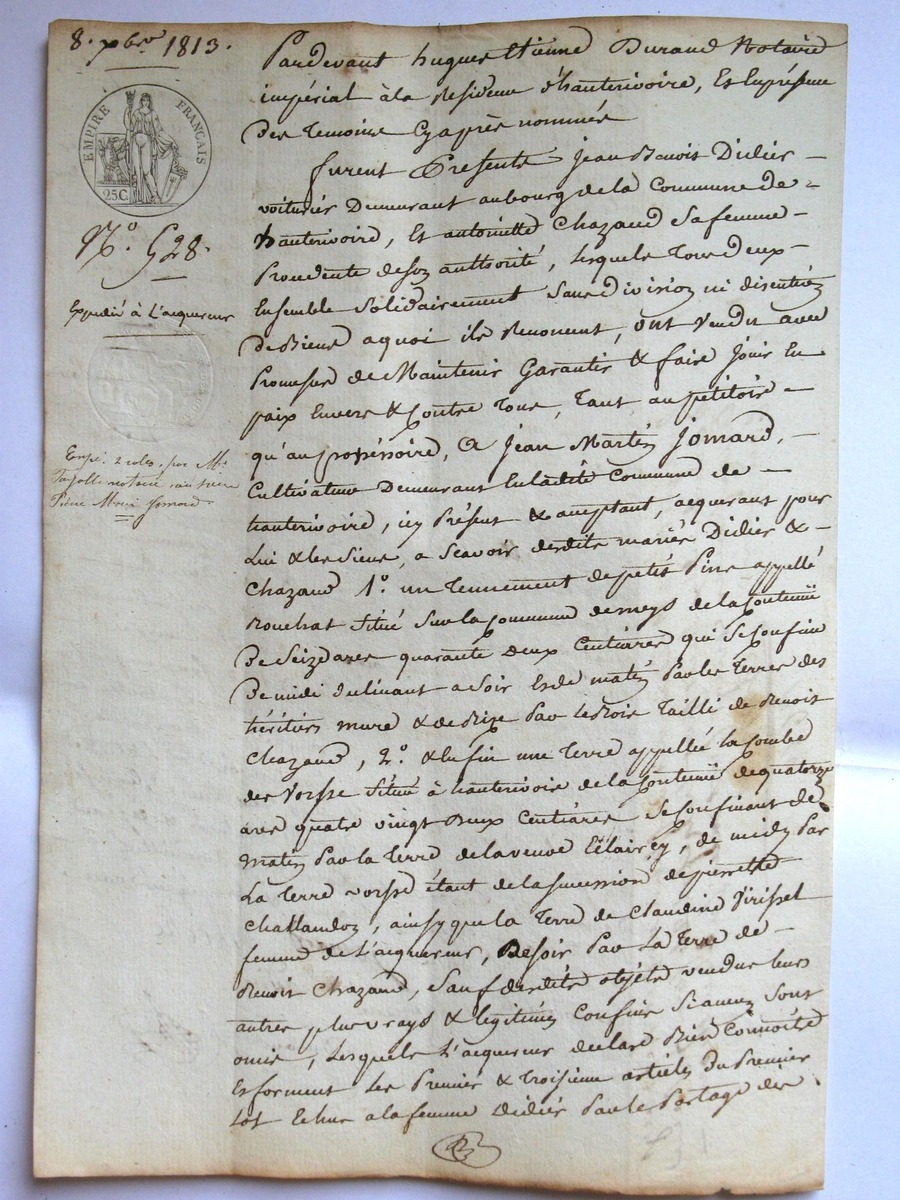 8. xbre 1813.
EMPIRE FRANÇAIS
25 C.
N.o 528.
Expédié à L'acquereur
Expé. 2 roles, par Me
notaire
Pierre Marie Jomard
Pardevant hugues Etienne Durand Notaire
impérial à la Residence d'hauterivoire, Et En présence
Des Temoins Cy après nommés
furent Présents Jean Benoit Didier
voiturier Demeurant au bourg de la Commune de
hauterivoire, Et antoinette Chazaud Sa femme
Procedente de son authorité, Lesquels Tous deux
Ensemble Solidairement Sans division ni discution
De Biens a quoi ils Renoncent, ont Vendu avec
Promesse de Maintenir Garantir & faire Jouir En
paix Envers & Contre Tous, Tant au petitoire
qu'au possessoire, A Jean Martin Jomard,
Cultivateur Demeurant En ladite Commune de
hauterivoire, icy Présent & acceptant, acquerant pour
Lui & les Siens, a Scavoir desdits mariés Didier &
Chazaud 1.o un Tennement de petits Pins appellé
Rouchat Situé Sur la Commune de meys de la Contenue
De Seize ares quarante deux Centiares qui Se Confine
De midi declinant a Soir Et de matin Par les Terres des
héritiers mure & de Bize Par le Bois Taillé de Benoit
Chazaud, 2.o & Enfin une Terre appellée la Combe
des Vorsse Située à hauterivoire de la Contenue De quatorze
ares quatre vingt Deux Centiares Se Confinant de
matin Par la Terre de la veuve, de midy Par
La Terre vorsse étant de la succession de pierrette
Chattandoz, ainsy que la Terre de Claudine Virisset
femme de L'acquereur, De Soir Par La Terre de
Benoit Chazaud, Sauf desdits objets vendus leurs
autres plus vrays & legitimes Confins Si aucuns Sont
omis, Lesquels L'acquereur declare Bien Connoitre
Et forment Les Premier & Troisieme articles Du Premier
Lot Echus a la femme Didier Par le Partage des